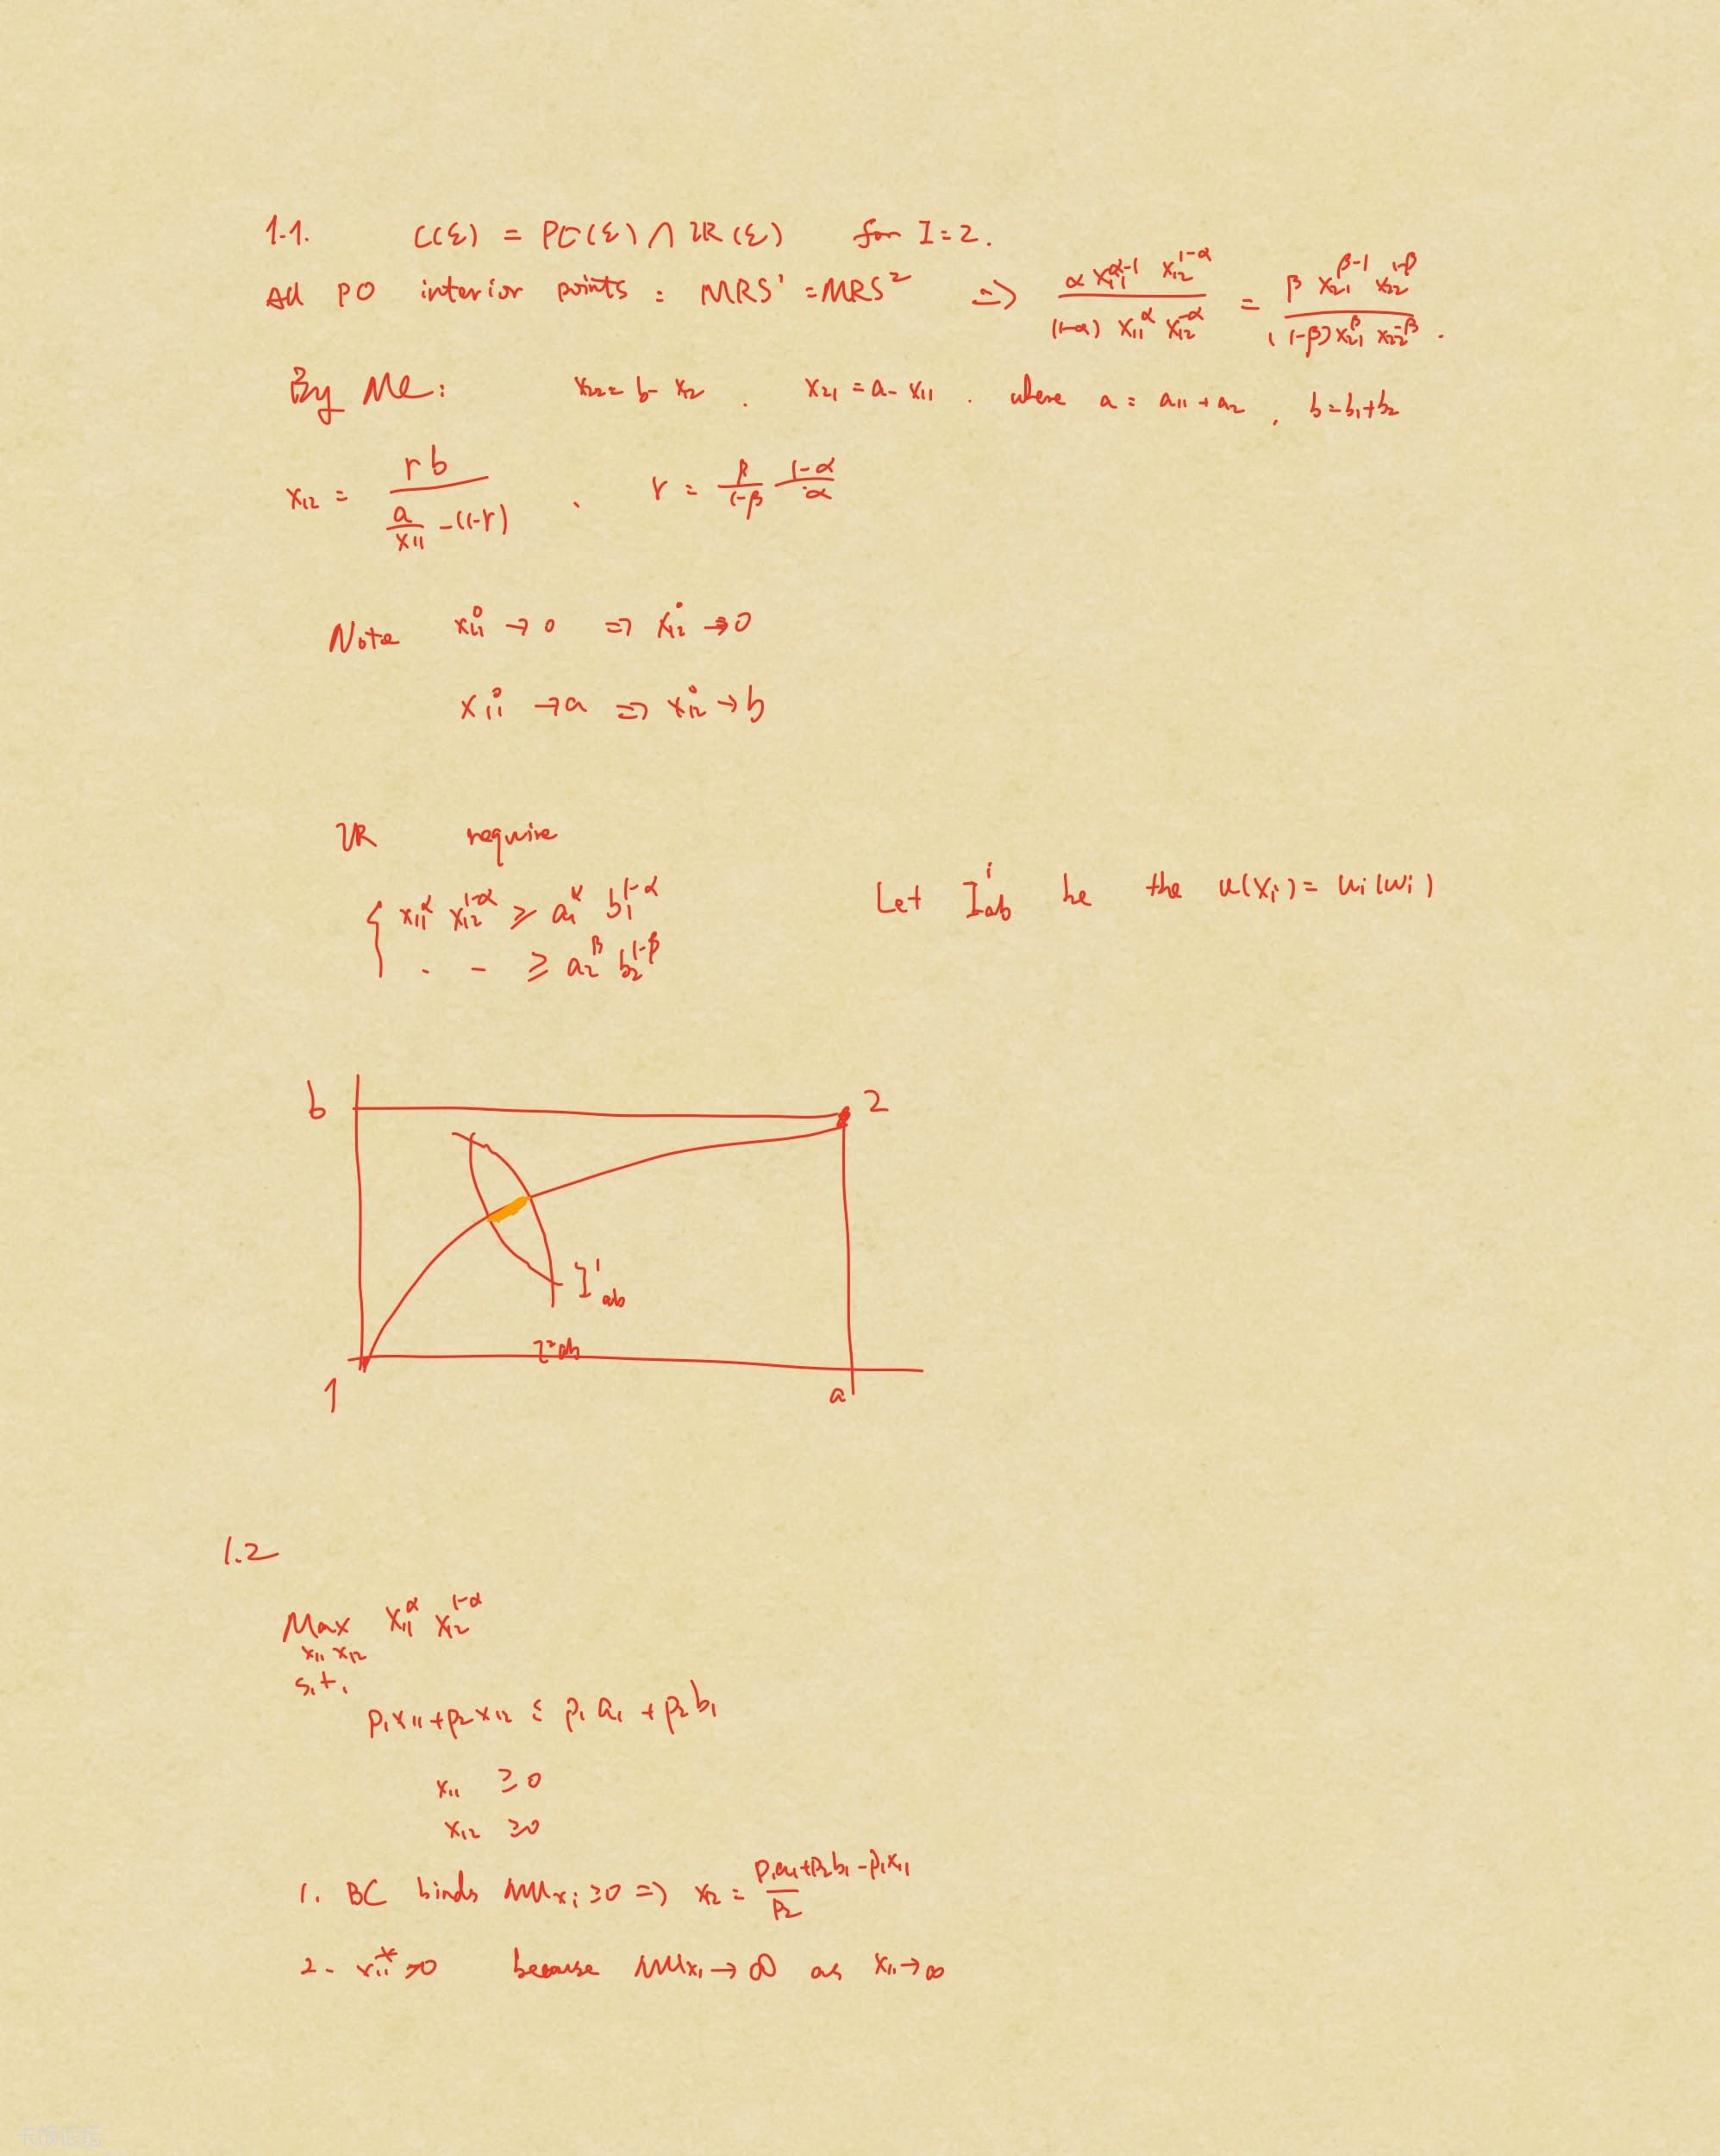 1.1. C(ε) = PO(ε) ∩ IR(ε) for I=2.
All PO interior points : MRS¹ = MRS² => (α x₁₁^(α-1) x₁₂^(1-α)) / ((1-α) x₁₁^α x₁₂^(-α)) = (β x₂₁^(β-1) x₂₂^(1-β)) / ((1-β) x₂₁^β x₂₂^(-β)) .
By Mc: x₂₂ = b - x₁₂ . x₂₁ = a - x₁₁ . where a = a₁₁ + a₂ , b = b₁+b₂
x₁₂ = rb / (a/x₁₁ - (1-r)) . r = β/(1-β) (1-α)/α
Note x₁₁° → 0 => x₁₂° → 0
x₁₁° → a => x₁₂° → b
IR require
{ x₁₁^α x₁₂^(1-α) ≥ a₁^α b₁^(1-α)
. - ≥ a₂^β b₂^(1-β)
Let I^i_ab be the u(xᵢ) = uᵢ(wᵢ)
b 2
I¹ab
I²ab
1 a
1.2
Max x₁₁^α x₁₂^(1-α)
x₁₁ x₁₂
s.t.
p₁x₁₁ + p₂x₁₂ ≤ p₁a₁ + p₂b₁
x₁₁ ≥ 0
x₁₂ ≥ 0
1. BC binds MUxᵢ ≥ 0 => x₁₂ = (p₁a₁ + p₂b₁ - p₁x₁₁) / p₂
2- x₁₁* >0 because MUx₁ → ∞ as x₁₁ → ∞